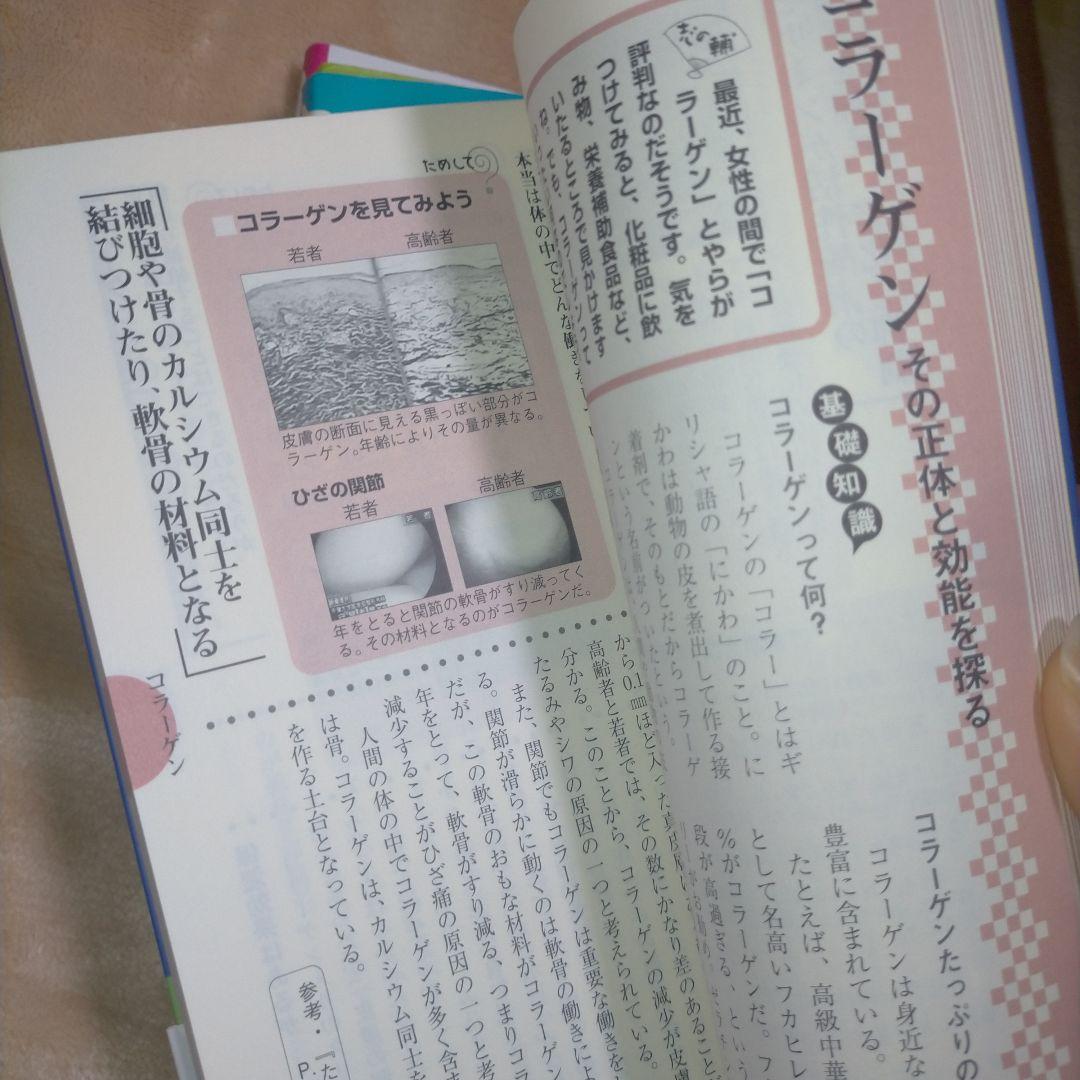 コラーゲン その正体と効能を探る
志の輔
最近、女性の間で「コ
ラーゲン」とやらが
評判なのだそうです。気を
つけてみると、化粧品に飲
み物、栄養補助食品など、
いたるところで見かけます
ね。でも、コラーゲンって
本当は体の中でどんな働きを
基礎知識
コラーゲンって何?
コラーゲンの「コラー」とはギ
リシャ語の「にかわ」のこと。に
かわは動物の皮を煮出して作る接
着剤で、そのもとだからコラーゲ
ンという名前がついたという。
コラーゲンたっぷりの
コラーゲンは身近な
豊富に含まれている。
たとえば、高級中華
として名高いフカヒレ
%がコラーゲンだ。フ
段が高過ぎる、という
ためして
コラーゲンを見てみよう
若者
高齢者
皮膚の断面に見える黒っぽい部分がコ
ラーゲン。年齢によりその量が異なる。
ひざの関節
若者
高齢者
若者
高齢者
年をとると関節の軟骨がすり減ってく
る。その材料となるのがコラーゲンだ。
細胞や骨のカルシウム同士を
結びつけたり、軟骨の材料となる
から0.1㎜ほど入った真皮
高齢者と若者では、その数にかなり差のあることが
分かる。このことから、コラーゲンの減少が皮膚
たるみやシワの原因の一つと考えられている。
また、関節でもコラーゲンは重要な働きを
る。関節が滑らかに動くのは軟骨の働きによ
だが、この軟骨のおもな材料がコラーゲン
年をとって、軟骨がすり減る、つまりコラ
減少することがひざ痛の原因の一つと考
人間の体の中でコラーゲンが多く含ま
は骨。コラーゲンは、カルシウム同士を
を作る土台となっている。
参考・『た
P.
コラーゲン